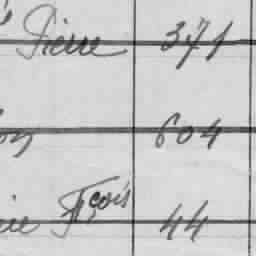 Pierre 371
on 604
ire Fçois 44